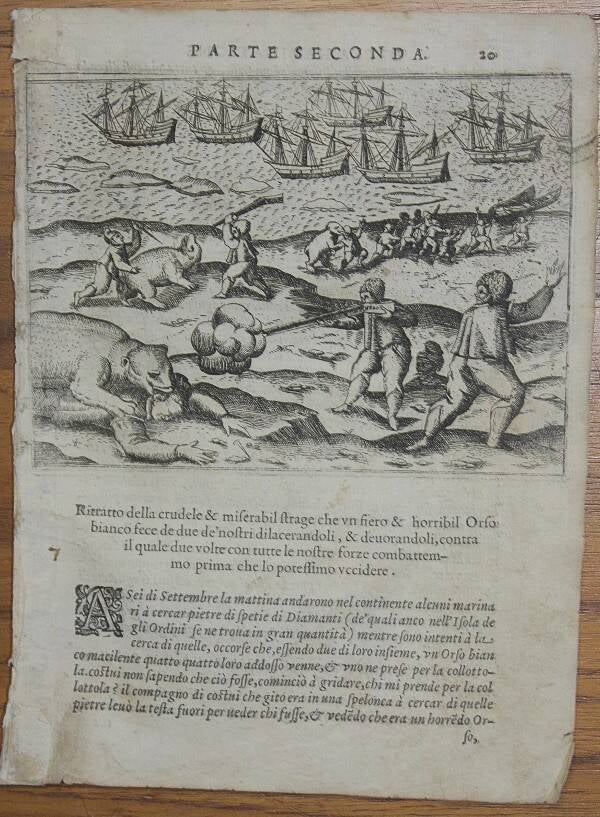 PARTE SECONDA. 20
Ritratto della crudele & miserabil strage che vn fiero & horribil Orso
bianco fece de due de'nostri dilacerandoli, & deuorandoli, contra
il quale due volte con tutte le nostre forze combattem-
mo prima che lo potessimo vccidere.
7
A Sei di Settembre la mattina andarono nel continente alcuni marina
ri à cercar pietre di spetie di Diamanti (de'quali anco nell'Isola de
gli Ordini se ne troua in gran quantità) mentre sono intenti à la
cerca di quelle, occorse che, essendo due di loro insieme, vn Orso bian
co macilente quatto quatto loro addosso venne, & vno ne prese per la collotto-
la. costui non sapendo che ciò fosse, cominciò à gridare, chi mi prende per la col
lottola è il compagno di costui che gito era in una spelonca à cercar di quelle
pietre leuò la testa fuori per ueder chi fusse, & vedẽdo che era un horrẽdo Or-
so,